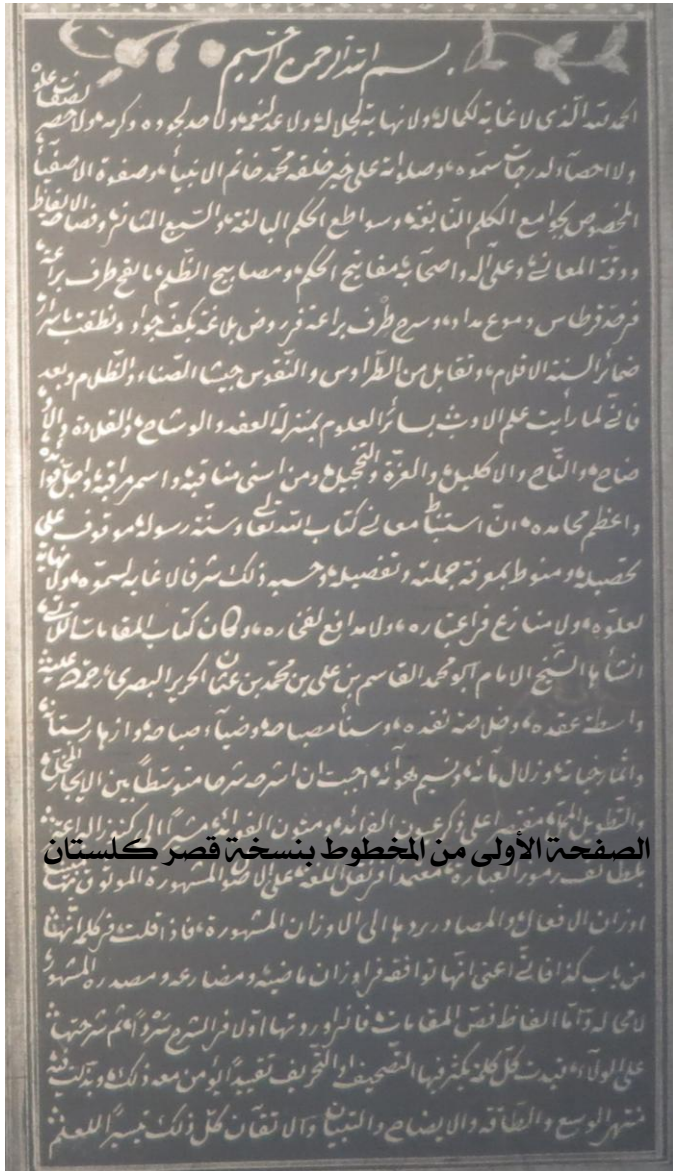 بسم الله الرحمن الرحيم
الحمد لله الذي لا غاية لكماله ولا نهاية لجلاله ولا عد لنعمه ولا حد لجوده وكرمه ولا حصر لصفات علوه
ولا احصاء لدرجات سموه وصلواته على خير خلقه محمد خاتم الانبياء وصفوة الاصفياء
المخصوص بجوامع الكلم النابغة وسواطع الحكم البالغة والسبع المثاني وفصاحة الالفاظ
ودقة المعاني وعلى آله واصحابه مفاتيح الحكم ومصابيح الظلم ما لقح طرف براعة
قرطاس دموع مداد وسرح طرف براعة في روض بلاغة بكف جواد ونطقت باسرار
ضمائر السنة الاقلام وتقابل من الطراوس والنقوس جيشا الضياء والظلام وبعد
فاني لما رأيت علم الادب بسائر العلوم بمنزلة العقد والوشاح والقلادة والاو
ضاح والتاج والاكليل والغرة والتحجيل ومن اسنى مناقبه واسم مراقبه واجل فوائده
واعظم محامده ان استنباط معاني كتاب الله تعالى وسنة رسوله موقوف على
تحصيله ومنوط بمعرفة جملته وتفصيله وحسبه ذلك شرفا لا غاية لسموه ولا نهاية
لعلوه ولا منازع في اعتباره ولا مدافع لفخاره وكان كتاب المقامات التي
انشأها الشيخ الامام ابو محمد القاسم بن علي بن محمد بن عثمان الحريري البصري رحمة الله عليه
واسطة عقده وخلاصة نقده وسنا مصباحه وضياء صباحه وازهار بستانه
واثمار جنانه وزلال مائه ونسيم هوائه احببت ان اشرحه شرحا متوسطا بين الايجاز المخل
والتطويل الممل
الصفحة الأولى من المخطوط بنسخة قصر كلستان
رموز العبارة معتمدا في نقل اللغة على الاصول المشهورة الموثوق بها
اوزان الافعال والمصادر بردها الى الاوزان المشهورة فاذا قلت في كلمة انها
من باب كذا فاني اعني انها توافقه في اوزان ماضيه ومضارعه ومصدره المشهور
لا محالة واما الفاظ نص المقامات فاني اوردتها اولا في الشرح سردا ثم شرحتها
على الولاء وقيدت كل كلمة يكثر فيها التصحيف او التحريف تقييدا يؤمن معه ذلك وبذلت فيه
منتهى الوسع والطاقة والايضاح والتبيان والاتقان كل ذلك تيسيرا للتعلم